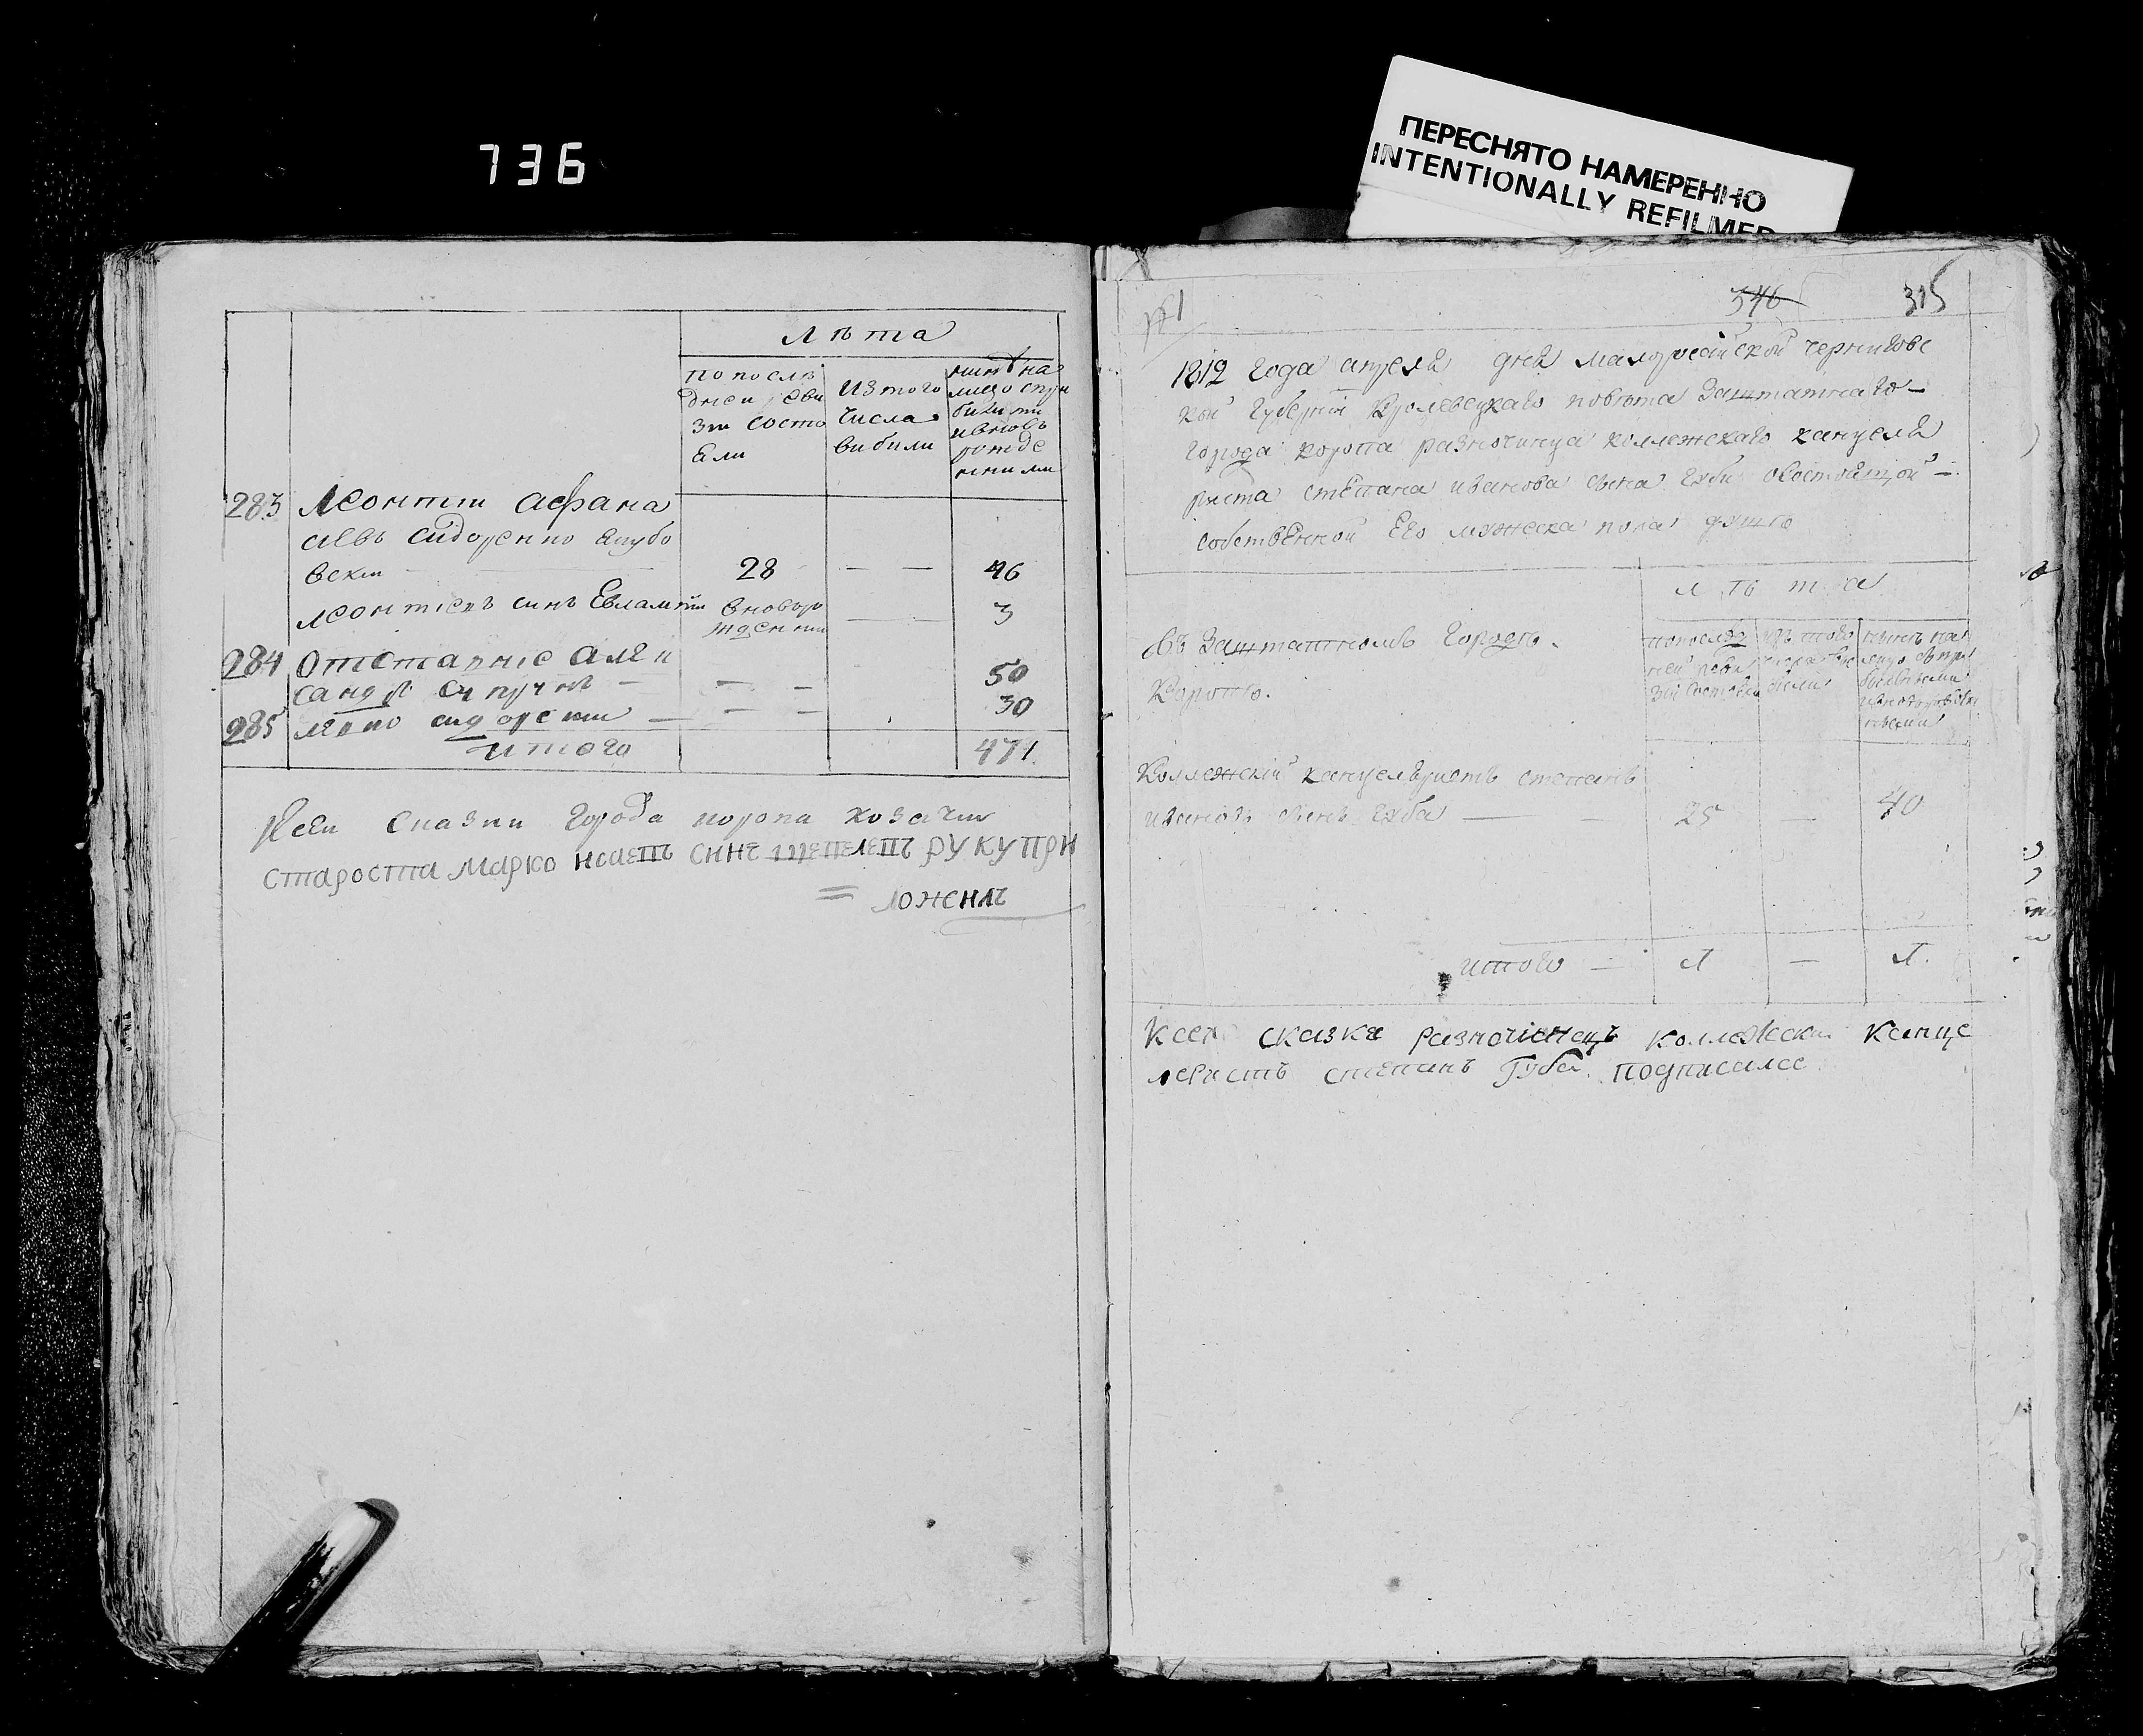 736
ПЕРЕСНЯТО НАМЕРЕННО
INTENTIONALLY REFILMED
лѣта
по послѣ
дней реви
зии состо
яли
изтого
числа
вибили
нинѣ на
лицо спри
били ми
ивновь
рожде
ними
283 Леонтии Афана
сиевъ Сидоренко
вски 28 — — 46
Леонтиевъ синъ Евлампии вноворо
жденни — 3
284 отставніе Алек
сандр — — — 50
285 сидоренки — — — 30
итого 471
Ксеи сказки города коропа козачии
староста Марко исаевъ синъ шепелевъ руку при
= ложилъ
№1 546 315
1812 года апреля дня малоросийской чернигове
кой губернии Кролевецкаго повѣта заштатнаго —
города коропа разночинца коллежскаго канцеля
риста степана иванова сина губи о состоящой —
собственной Его мужеска пола душѣ
лѣта
въ заштатномъ городѣ
Коропѣ.
по послед
ней реви
зии состояли
изъ того
числа
были
нынѣ на
лицо съ при
былыми
и вновь рожден
ными
Коллежскій канцеляристъ степанъ
ивановъ синъ губа — — 25 — 40
итого — 1 — 1.
Ксей сказки разночинецъ коллежски канце
леристъ степанъ Губа подписался